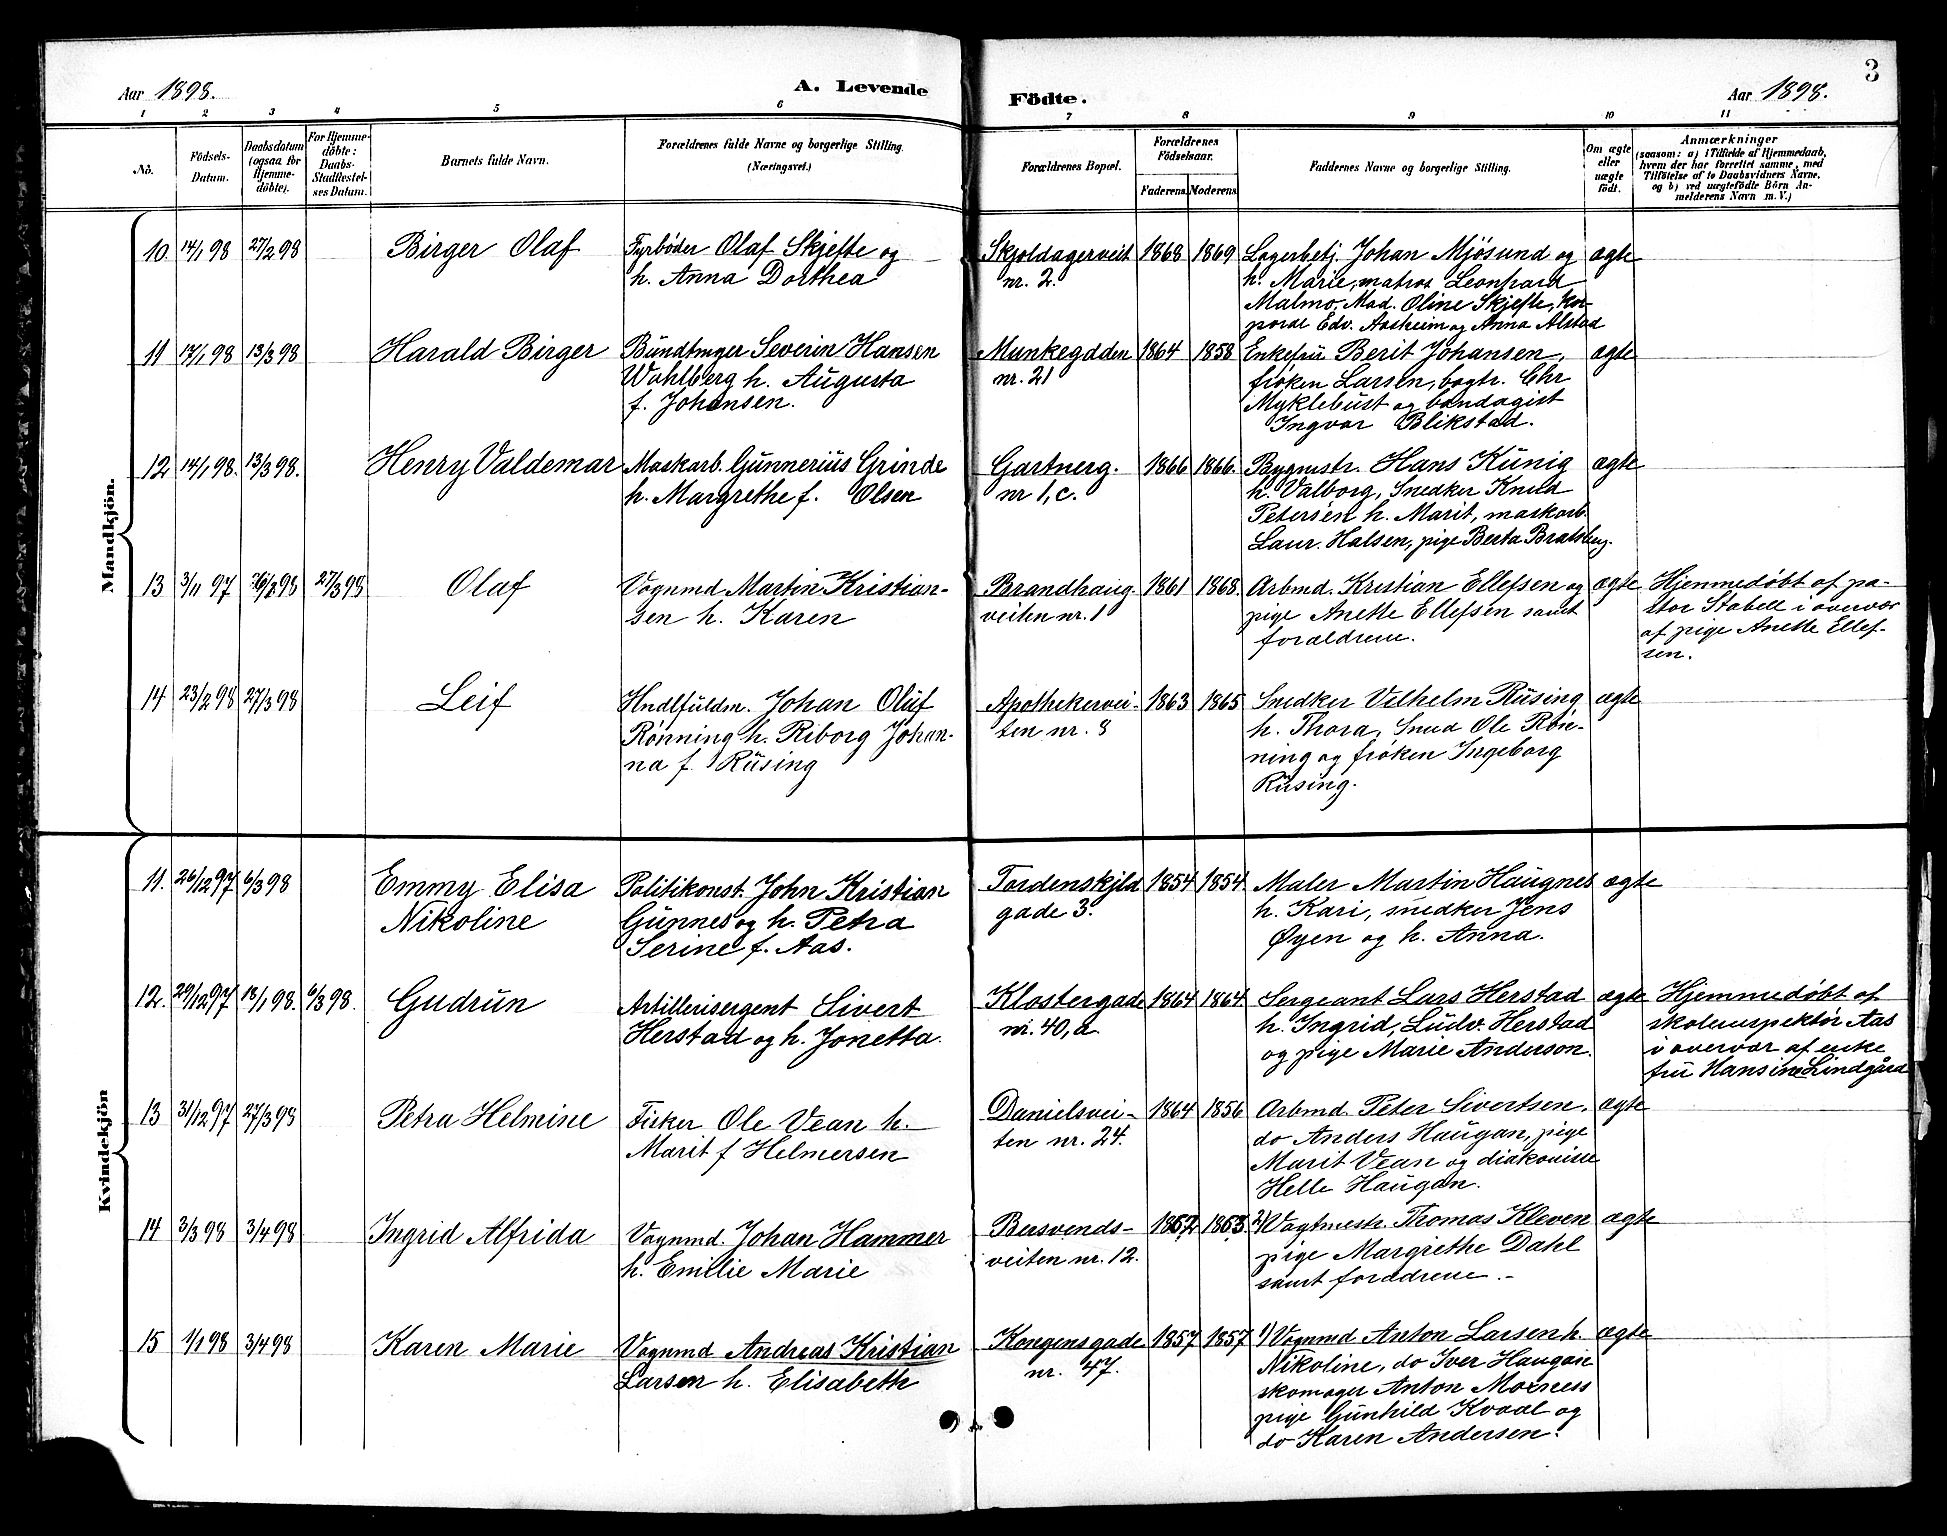 3
Aar 1898.
A. Levende Födte.
Aar 1898.
1 2 3 4 5 6 7 8 9 10 11
No.
Födsels-
Datum.
Daabsdatum
(ogsaa for
Hjemme-
döbte).
For Hjemme-
döbte:
Daabs-
Stadfestel-
ses Datum.
Barnets fulde Navn.
Forældrenes fulde Navne og borgerlige Stilling.
(Næringsvei.)
Forældrenes Bopæl.
Forældrenes
Födselsaar.
Faderens. Moderens.
Faddernes Navne og borgerlige Stilling.
Om ægte
eller
uægte
födt.
Anmærkninger
(saasom: a) i Tilfælde af Hjemmedaab,
hvem der har forrettet samme, med
Tilföielse af to Daabsvidners Navne,
og b) ved uægtefödte Börn An-
melderens Navn m. V.)
Mandkjön.
10. 14/1 98 27/2 98
Birger Olaf
Fyrbøder Olaf Skjefte og
h. Anna Dorthea
Skjoldagerveit
nr. 2.
1868 1869
Lagerbetj. Johan Mjösund og
h. Marie, matros Leonhard
Malmo, Mad. Oline Skjefte, kor-
poral Edv. Aasheim og Anna Alstad
ægte
11 17/1 98 13/3 98
Harald Birger
Bundtmger Severin Hansen
Wahlberg h. Augusta
f. Johansen.
Munkegdden
nr. 21
1864 1858
Enkefru Berit Johansen,
frøken Larsen, bogtr. Chr
Myklebust og bandagist
Ingvar Blikstad.
ægte
12 14/1 98. 13/3 98.
Henry Valdemar
Maskarb. Gunnerius Grinde
h. Margrethe f. Olsen
Gartnerg.
nr 1, c.
1866 1866.
Bygmstr. Hans Kunig
h. Valborg, Snedker Knud
Petersen h. Marit, maskarb.
Laur. Halsen, pige Berta Bratsberg.
ægte
13 3/11 97 2/98 27/3 98
Olaf
Vognmd Martin Kristian-
sen h. Karen
Brandhaug-
veiten nr. 1
1861 1868.
Arbmd. Kristian Ellefsen og
pige Anette Ellefsen samt
foraldrene.
ægte
Hjemmedøbt af pa-
stor Stabell i overvær
af pige Anette Ellef-
sen.
14 23/2 98 27/3 98
Leif
Hndlfuldm. Johan Oluf
Rønning h. Riborg Johan-
na f. Rusing
Apothekervei-
ten nr. 8
1863 1865
Snedker Vilhelm Rusing
h. Thora, Snud Ole Røn-
ning og frøken Ingeborg
Rusing.
ægte
Kvindekjön
11. 26/12 97 6/3 98
Emmy Elisa
Nikoline
Politikonst. John Kristian
Gunnes og h. Petra
Serine f. Aas.
Tordenskjld
gade 3.
1854 1854
Maler Martin Haugnes
h. Kari, snedker Jens
Øyen og h. Anna.
ægte
12. 29/12 97 18/1 98. 6/3 98.
Gudrun
Artillerisergent Sivert
Herstad og h. Jonetta.
Klostergade
nr. 40, a
1864 1864
Sergeant Lars Herstad
h. Ingrid, Ludv. Herstad
og pige Marie Anderson.
ægte
Hjemmedøbt af
skoleinspektør Aas
i overvær af enke
fru Hansine Lindgård
13 31/12 97 27/3 98
Petra Helmine
Fisker Ole Vean h.
Marit f Helmersen
Danielsvei-
ten nr. 24.
1864 1856
Arbmd. Peter Sivertsen,
do Anders Haugan, pige
Marit Vean og diakonisse
Helle Haugan.
ægte
14 3/3 98 3/4 98
Ingrid Alfrida
Vognmd Johan Hammer
h. Emilie Marie
Bersvends-
veiten nr. 12.
1862 1863
2) Vagtmestr. Thomas Kleven
pige Margrethe Dahl
samt foraldrene.-
ægte
15 1/1 98 3/4 98
Karen Marie
Vognmd Andreas Kristian
Larsen h. Elisabeth
Kongensgade
nr. 47.
1857 1857
1) Vognmd Anton Larsen h.
Nikoline, do Iver Haugan
skomager Anton Moxness
pige Gunhild Kvaal og
do Karen Andersen.
ægte